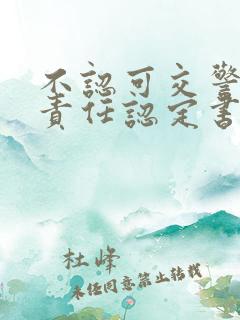 不認可交警
責任認定書
杜峰
未任同意禁止转载